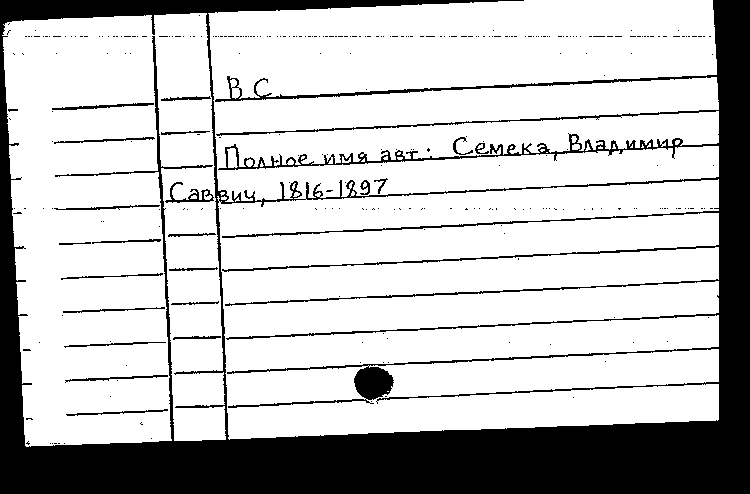 В. С.
Полное имя авт.: Семека, Владимир
Саввич, 1816-1897